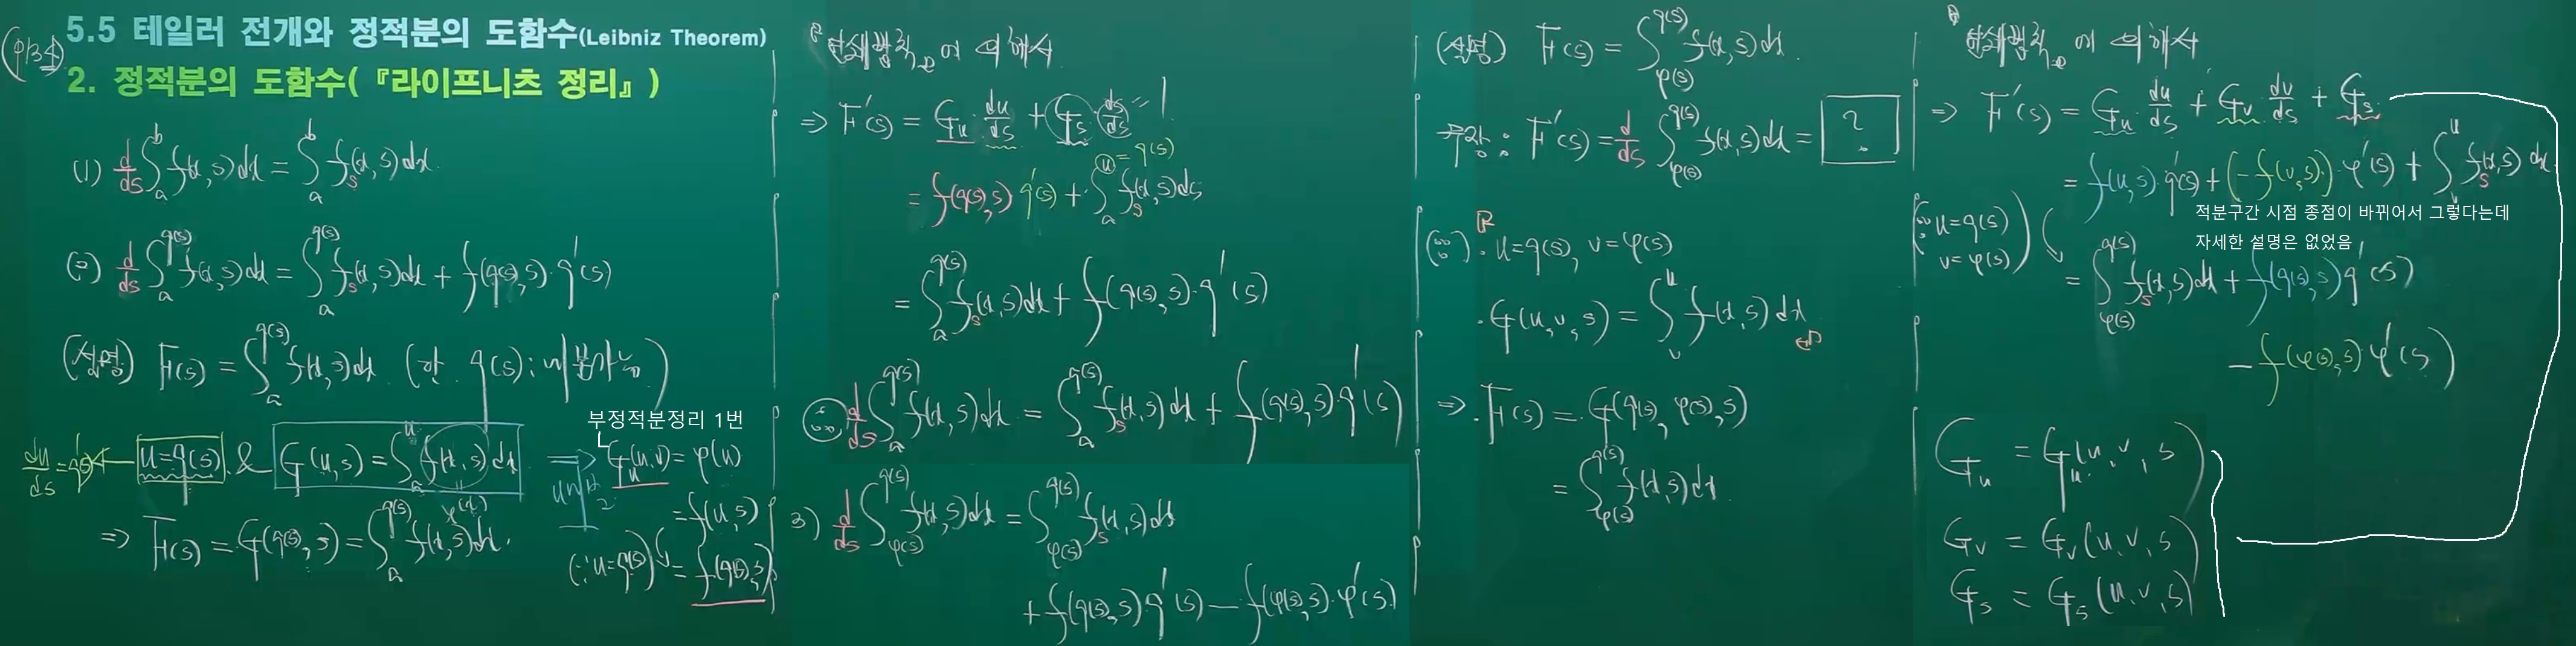 (p134)
5.5 테일러 전개와 정적분의 도함수(Leibniz Theorem)
2. 정적분의 도함수(『라이프니츠 정리』)
(1) d/ds ∫_a^b f(x,s)dx = ∫_a^b f_s(x,s)dx.
(2) d/ds ∫_a^{q(s)} f(x,s)dx = ∫_a^{q(s)} f_s(x,s)dx + f(q(s),s)·q'(s)
(설명) F(s) = ∫_a^{q(s)} f(x,s)dx. (단. q(s): 미분가능)
du/ds = q'(s) ← u=q(s) & G(u,s) = ∫_a^u f(x,s)dx ⇒ G_u(u,v) = φ(u)
부정적분정리 1번
= f(u,s)
⇒ F(s) = G(q(s),s) = ∫_a^{q(s)} f(x,s)dx.
(∵ u=q(s)) = f(q(s),s)
연쇄법칙에 의해서
⇒ F'(s) = G_u · du/ds + G_s · ds/ds = 1
u = q(s)
= f(q(s),s) q'(s) + ∫_a f_s(x,s)dx
= ∫_a^{q(s)} f_s(x,s)dx + f(q(s),s)·q'(s)
∴ d/ds ∫_a^{q(s)} f(x,s)dx = ∫_a^{q(s)} f_s(x,s)dx + f(q(s),s)·q'(s)
3) d/ds ∫_{φ(s)}^{q(s)} f(x,s)dx = ∫_{φ(s)}^{q(s)} f_s(x,s)dx
+ f(q(s),s)·q'(s) − f(φ(s),s)·φ'(s)
(설명) F(s) = ∫_{φ(s)}^{q(s)} f(x,s)dx.
구함: F'(s) = d/ds ∫_{φ(s)}^{q(s)} f(x,s)dx = ?
(∵) · u=q(s), v=φ(s)
· G(u,v,s) = ∫_v^u f(x,s)dx
⇒ F(s) = G(q(s), φ(s), s)
= ∫_{φ(s)}^{q(s)} f(x,s)dx.
연쇄법칙에 의해서
⇒ F'(s) = G_u · du/ds + G_v · dv/ds + G_s
= f(u,s)·q'(s) + (−f(v,s))·φ'(s) + ∫_v^u f_s(x,s)dx
적분구간 시점 종점이 바뀌어서 그렇다는데
자세한 설명은 없었음
(∵ u=q(s)
v=φ(s))
= ∫_{φ(s)}^{q(s)} f_s(x,s)dx + f(q(s),s)q'(s)
− f(φ(s),s)φ'(s)
G_u = G_u(u,v,s)
G_v = G_v(u,v,s)
G_s = G_s(u,v,s)